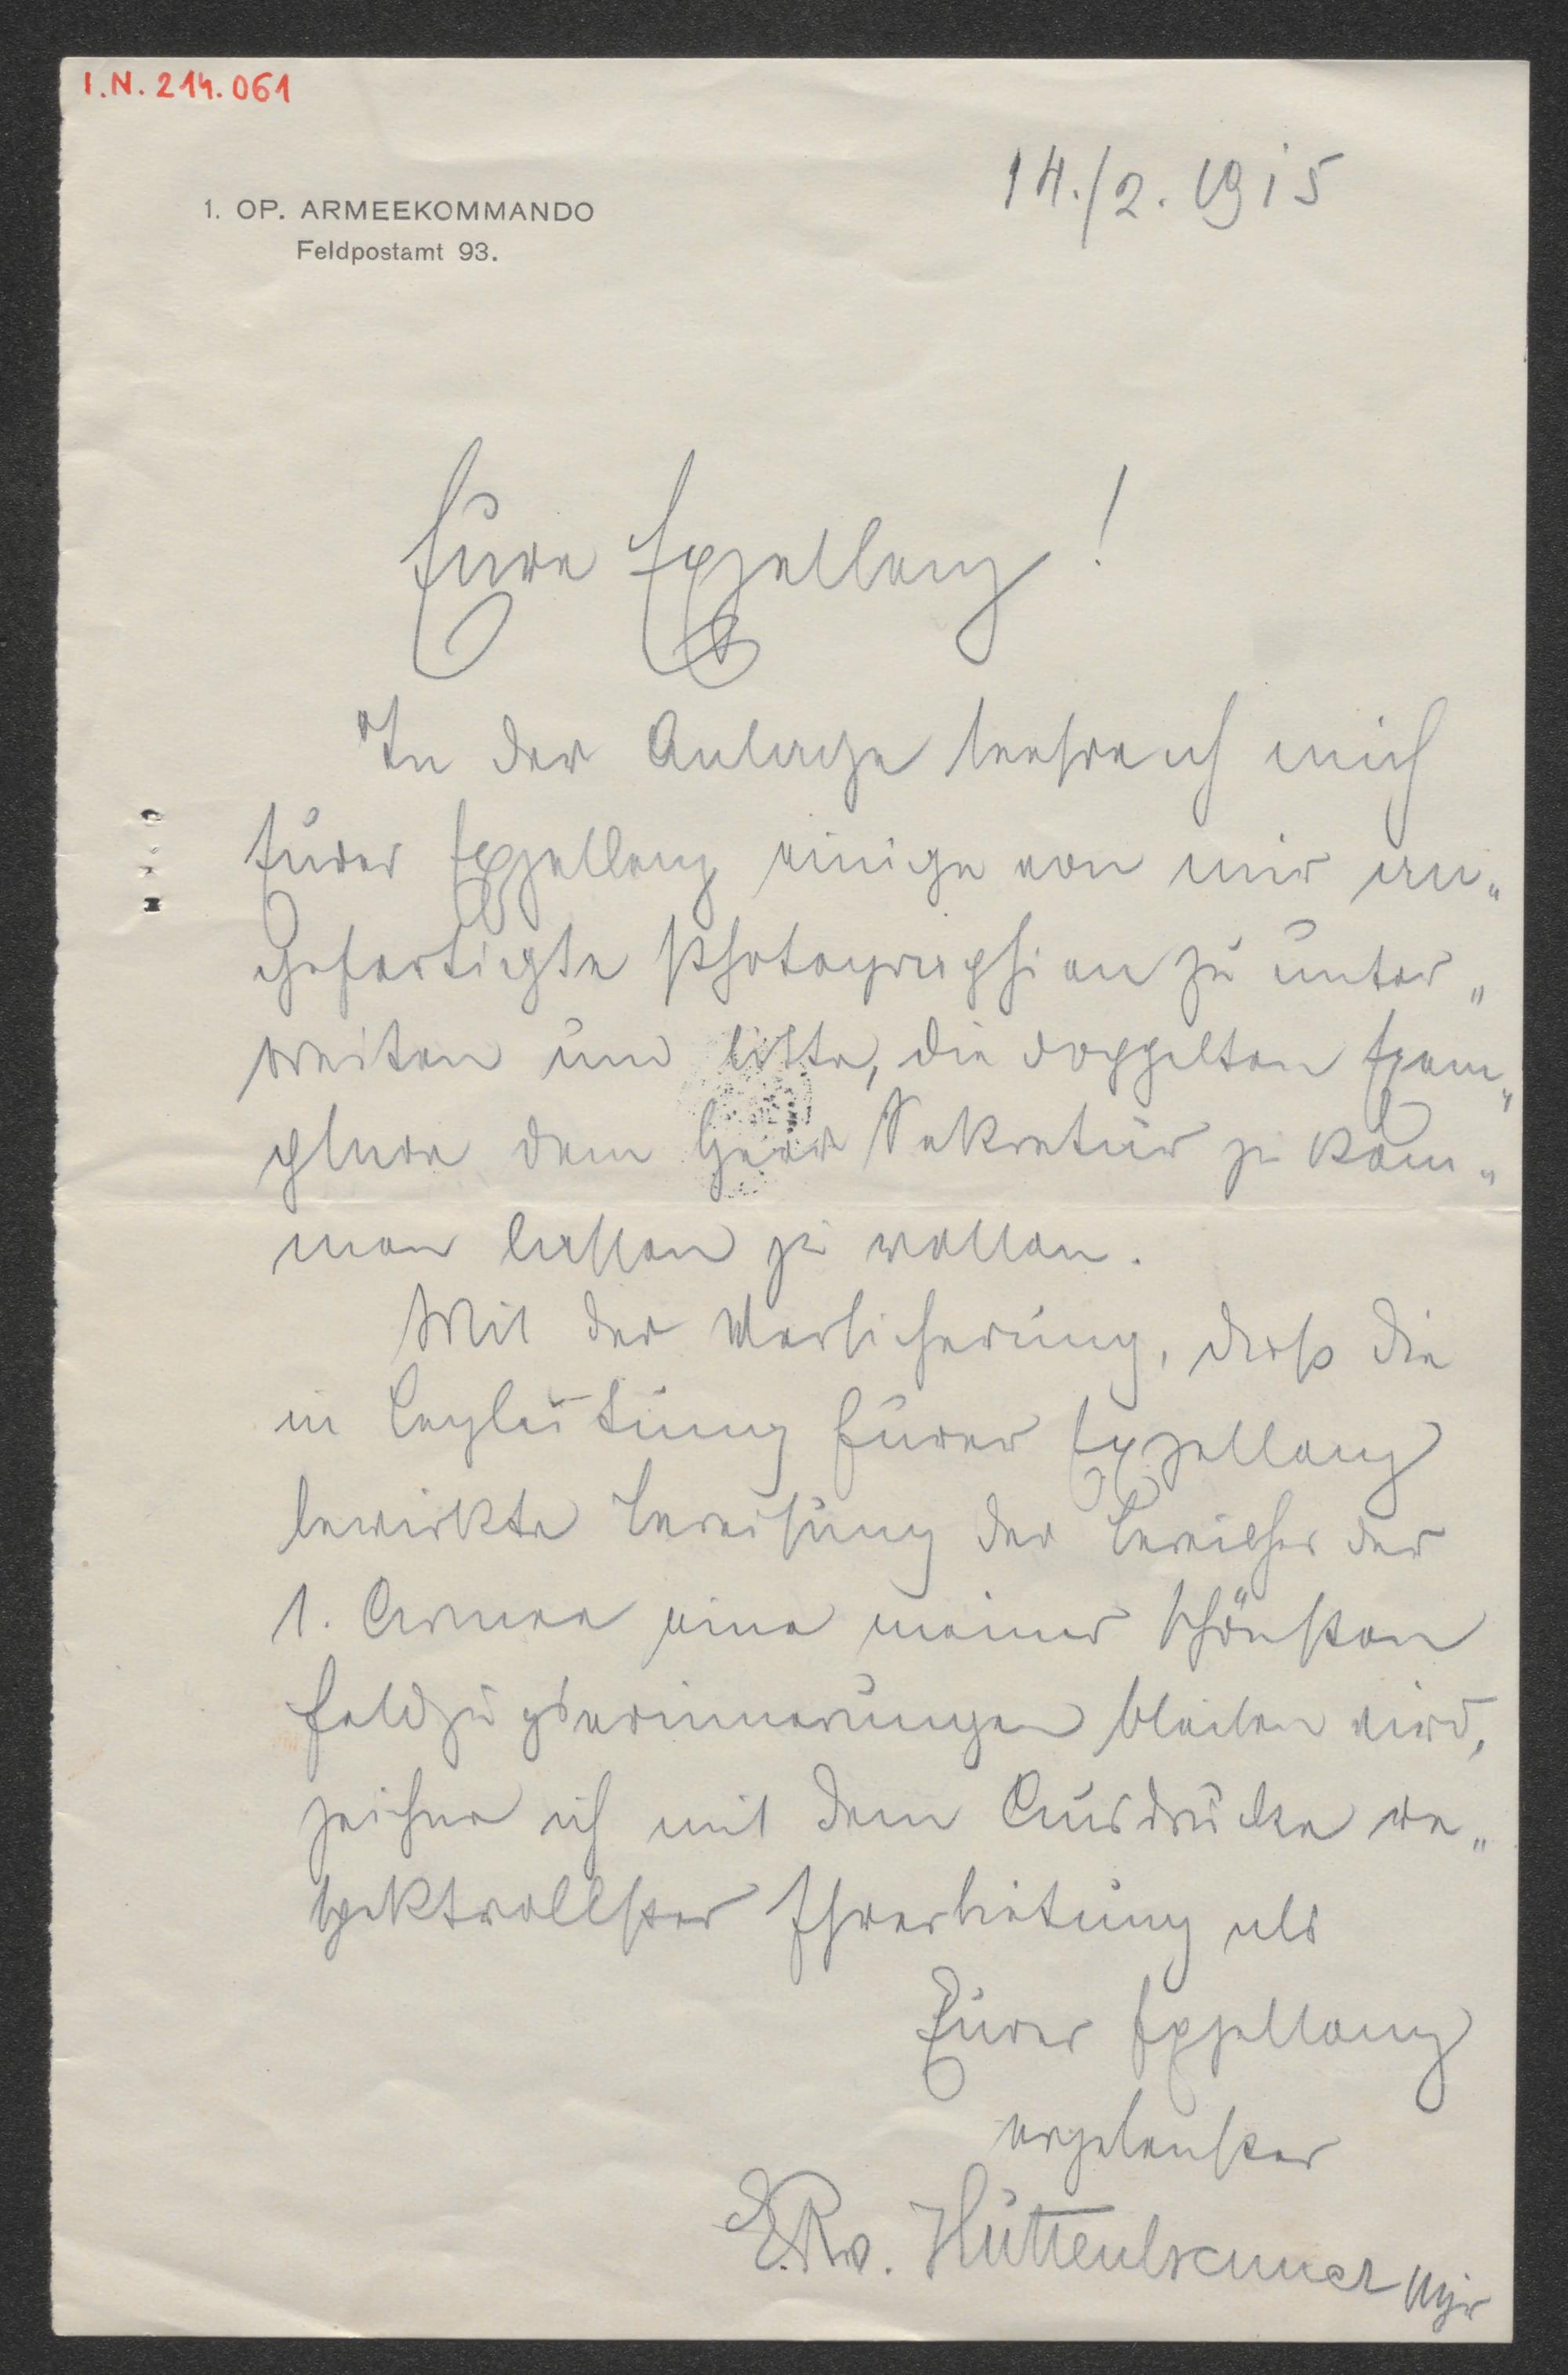 I.N. 214.061
1. OP. ARMEEKOMMANDO
Feldpostamt 93.
14./2. 1915
Eure Exzellenz!
In der Anlage beehre ich mich
Eurer Exzellenz einige von mir an„
gefertigte Photographien zu unter„
breiten und bitte, die doppelten Exem„
plare dem Herr Sekretär zu kom„
men lassen zu wollen.
Mit der Versicherung, dass die
in Begleitung Eurer Exzellenz
bewirkte Bereisung der Bereiche der
1. Armee eine meiner schönsten
Feldzugserinnerungen bleiben wird,
zeichne ich mit dem Ausdrucke re„
spektvollster Ehrerbietung als
Eurer Exzellenz
ergebenster
E.R.v. Hüttenbrenner Mjr